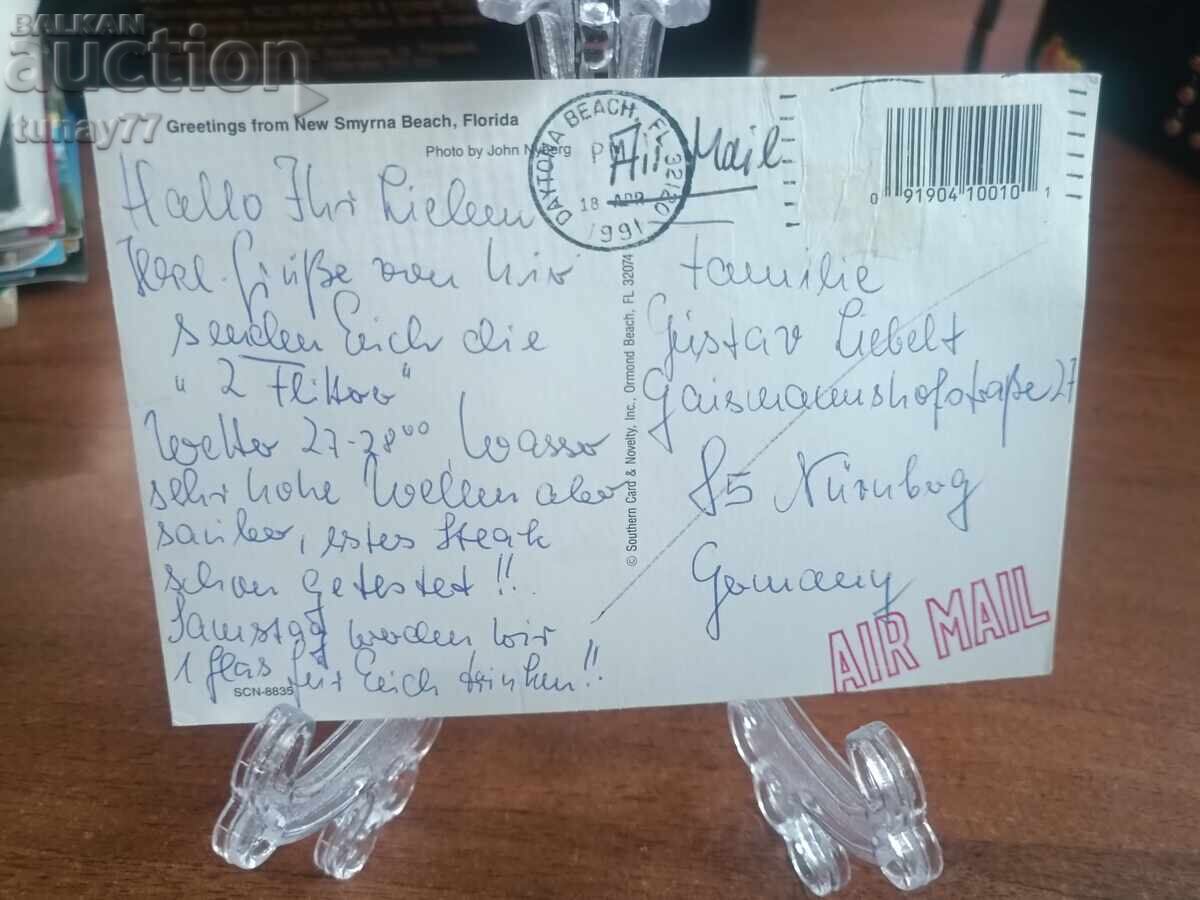 BALKAN
auction
tunay77
Greetings from New Smyrna Beach, Florida
Photo by John Nyberg
DAYTONA BEACH, FL 32120
PM
18 APR
1991
Air Mail
0 91904 10010 1
Hallo Ihr Lieben
Herl. Grüße von hir
senden Euch die
"2 Flitter"
Wetter 27-28°° Wasser
sehr hohe Wellen aber
sauber, erstes Steak
schon getestet!!
Samstag werden wir
1 Glas für Euch trinken!!
SCN-8835
© Southern Card & Novelty, Inc., Ormond Beach, FL 32074
Familie
Gustav Liebelt
Gaismannshofstraße 27
85 Nürnberg
Germany
AIR MAIL